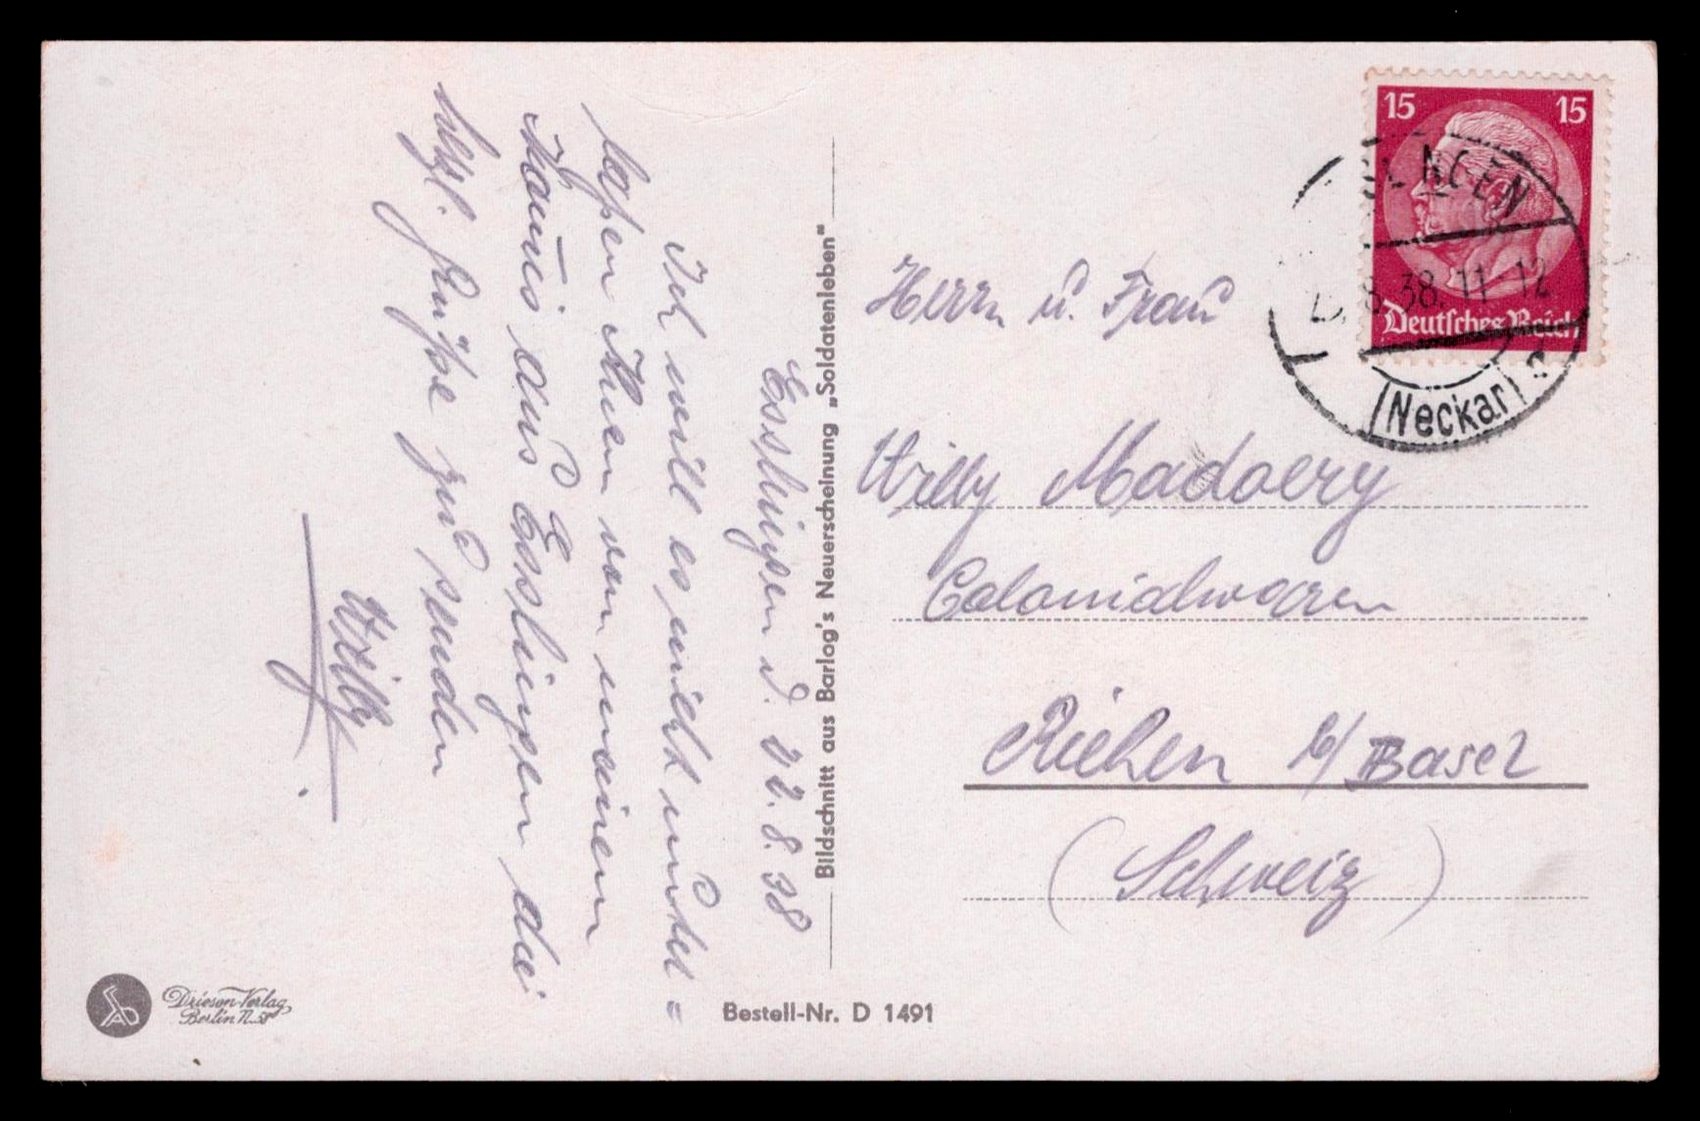 Esslingen d. 22.8.38
Ich will es nicht unter=
lassen Ihnen von meinem
aus Esslingen die
herzl. Grüße zu senden
Willy
Bildschnitt aus Barlog's Neuerscheinung „Soldatenleben“
15 15
Deutsches Reich
NGEN
8.38.11-12
(Neckar)
Herrn u. Frau
Willy Madoery
Colonialwaren
Riehen b/Basel
(Schweiz)
Drieson-Verlag
Berlin N.58
Bestell-Nr. D 1491